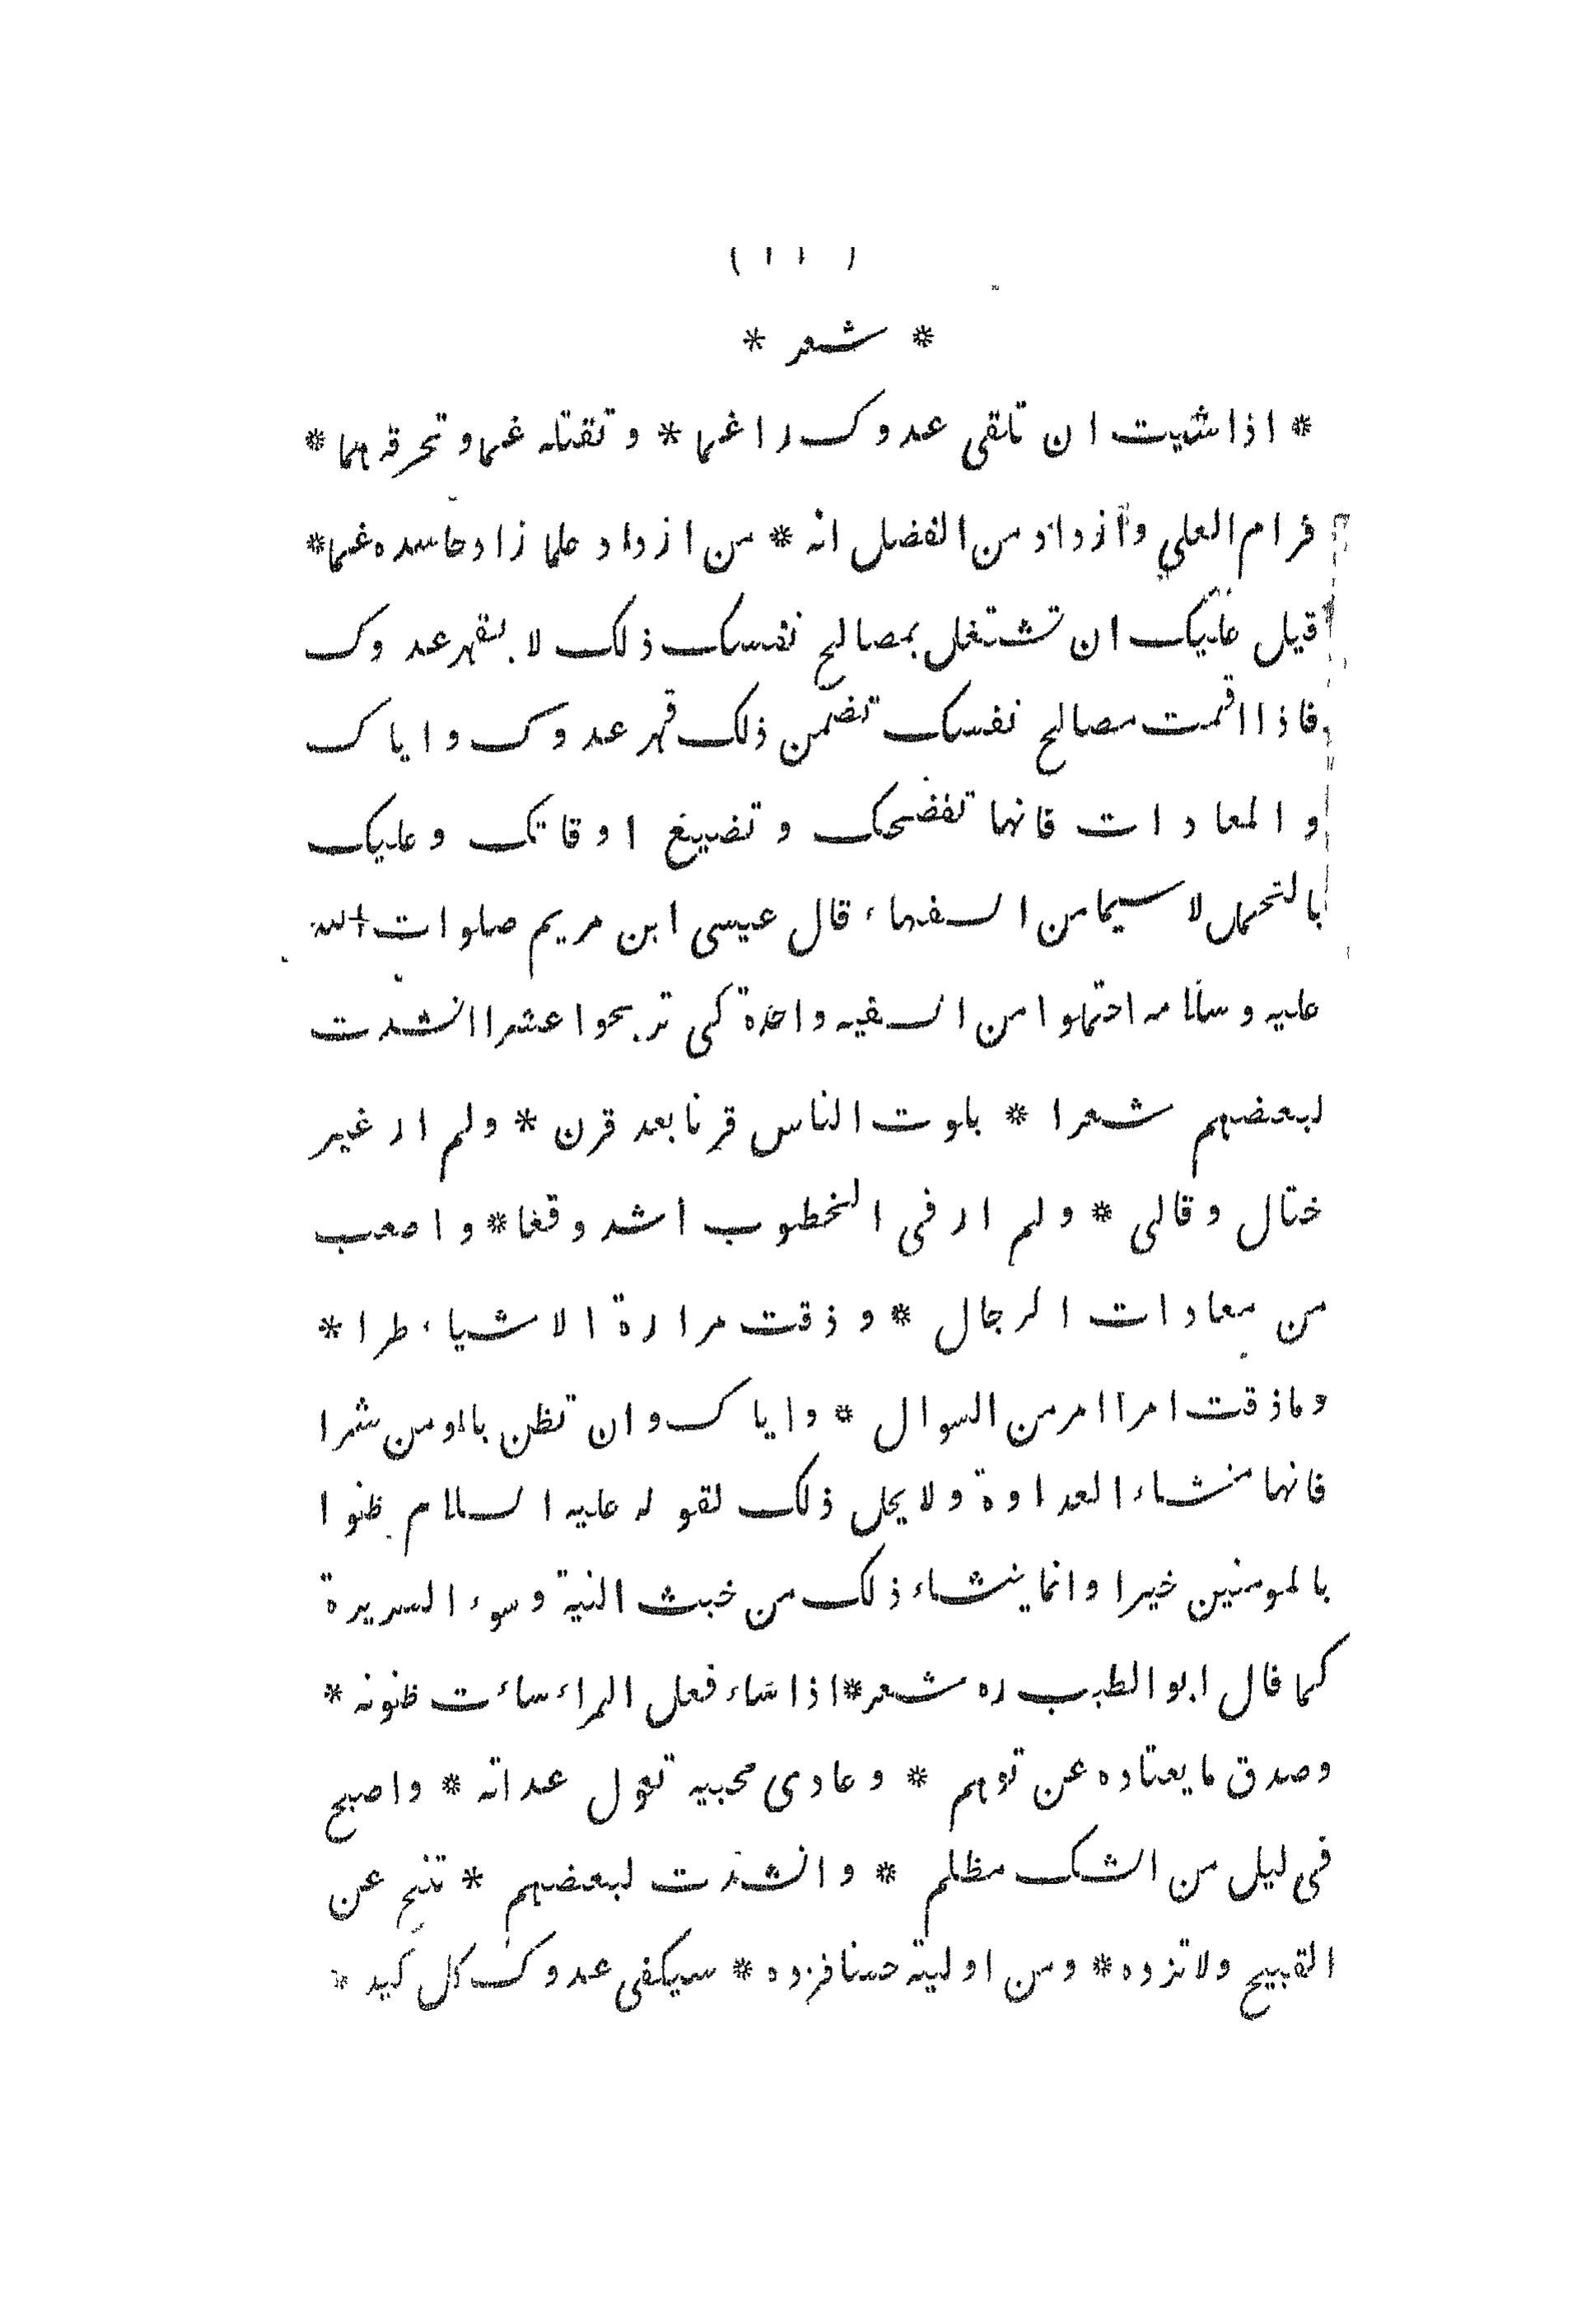 ( ١١ )
* شعر *
* اذا شيت ان تلقى عدوك راغما * و تقتله غما و تحرقه هما *
فرام العلي وازداد من الفضل انه * من ازداد علما زاد حاسده غما *
قيل عليك ان تشتغل بمصالح نفسك ذلك لا بقهر عدوك
فاذا اقمت مصالح نفسك تضمن ذلك قهر عدوك و اياك
و المعادات فانها تفضحك و تضييع اوقاتك و عليك
بالتحمل لا سيما من السفهاء قال عيسى ابن مريم صلوات الله
عليه و سلامه احتملوا من السفيه واحدة كى تربحوا عشرا انشدت
لبعضهم شعرا * بلوت الناس قرنا بعد قرن * ولم ار غير
ختال و قالي * ولم ار فى الخطوب اشد وقعا * و اصعب
من معادات الرجال * و ذقت مرارة الاشياء طرا *
وماذقت امرا امر من السوال * واياك وان تظن بالمومن شرا
فانها منشاء العداوة ولا يحل ذلك لقوله عليه السلام ظنوا
بالمومنين خيرا وانما ينشاء ذلك من خبث النية وسوء السريرة
كما قال ابو الطيب ره شعر * اذا شاء فعل المراء سائت ظنونه *
وصدق ما يعتاده عن توهم * و عادى محبيه تقول عداته * واصبح
فى ليل من الشك مظلم * و انشدت لبعضهم * تنح عن
القبيح ولا تزده * ومن اوليته حسنا فزده * سيكفى عدوك كل كيد *